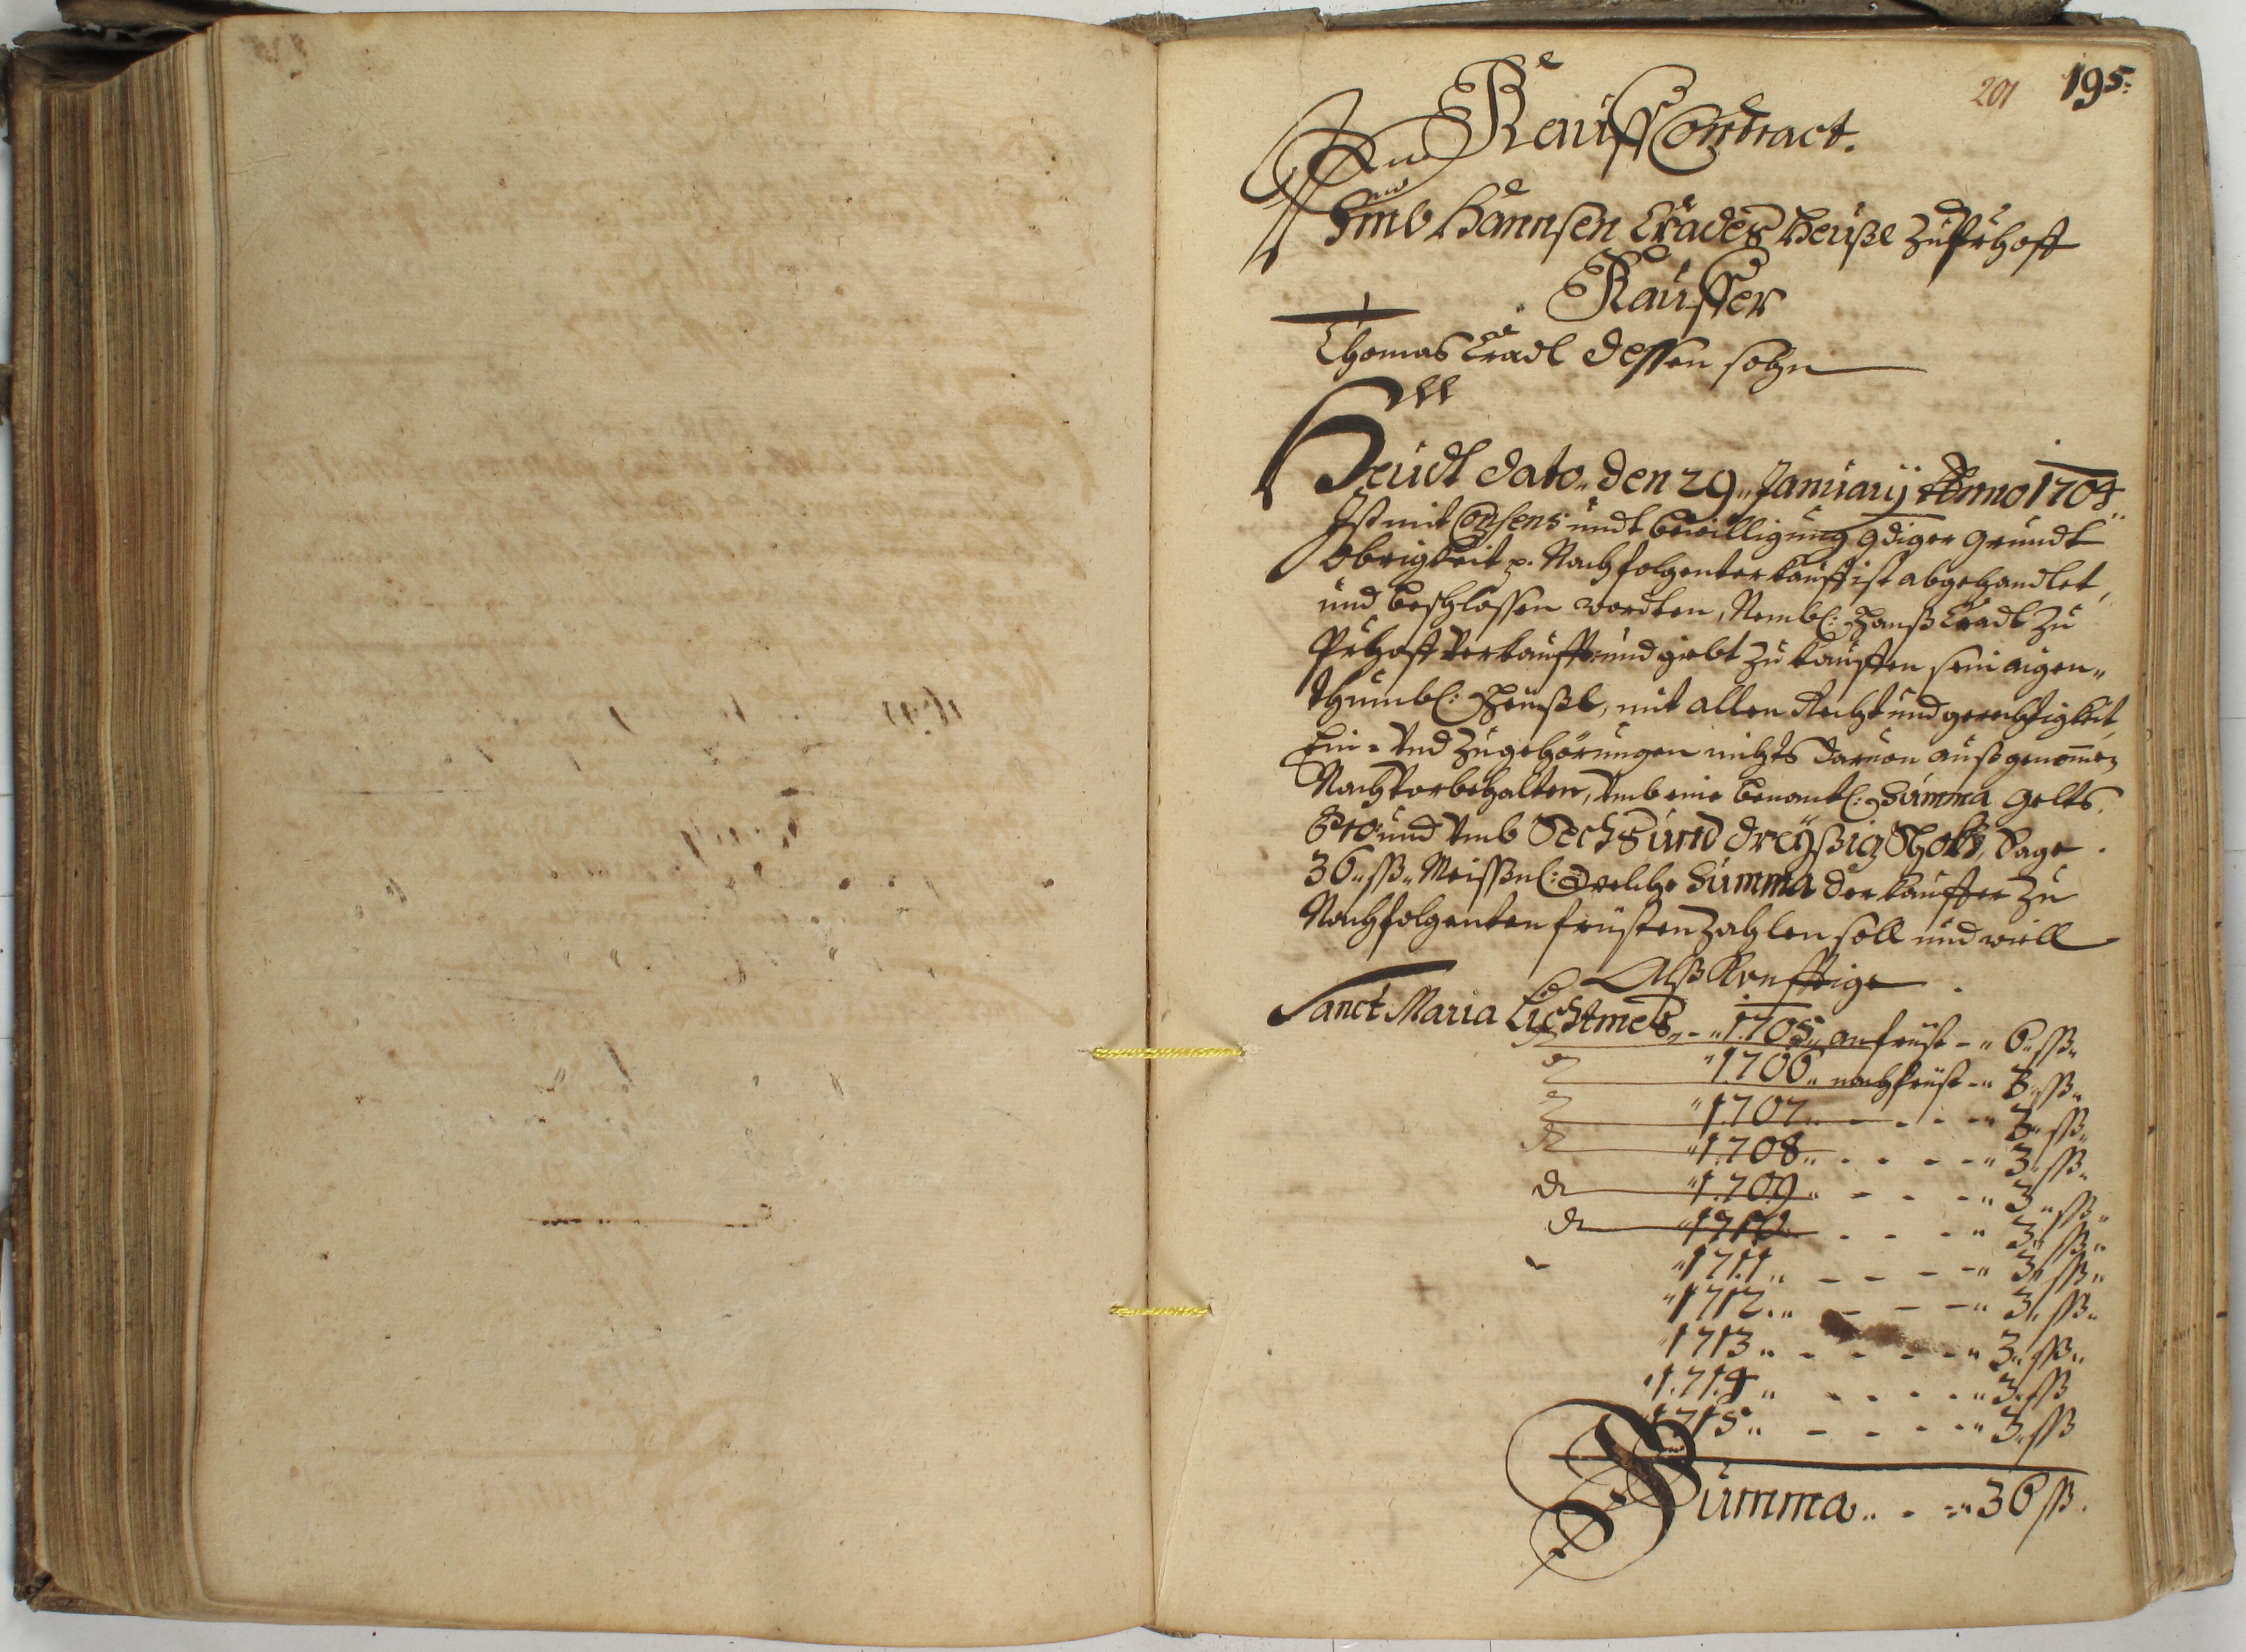 201 195:
Kauff Contract.
Umb Hannsen Tradls Heußl zu Pržhoff
Kauffer
Thomas Tradl dessen sohn
Heudt dato den 29. January Anno 1704
Ist mit Consens undt bewilligung gdiger grundt
Obrigkeit p. Nachfolgenter kauff ist abgehandlet,
und beschlossen wordten, Nembl: Hanß Tradl zu
verkaufft und giebt zu kauffen sein aigen-
thumbl: Heußl, mit allen Recht und gerechtigkeit,
Ein- Und Zugehörungen nichts daruon außgenomen
Noch Vorbehalten, Umb eine benantl: Summa gelts.
Pro: und Umb Sechs und dreyßig Schokh, Sage
36 ßß Meissnl: welche Summa der kauffer zu
Nachfolgenten früsten zahlen soll und will
Alß Künfftige
Sanct Maria Lichtmeß 1705 anfrist - 6 ßß
1706 nachfrist - 3 ßß
1707 - - - 3 ßß
1708 - - - 3 ßß
1709 - - - 3 ßß
1710 - - - 3 ßß
1711 - - - 3 ßß
1712 - - - 3 ßß
1713 - - - 3 ßß
1714 - - - 3 ßß
1715 - - - 3 ßß
Summa - 36 ßß